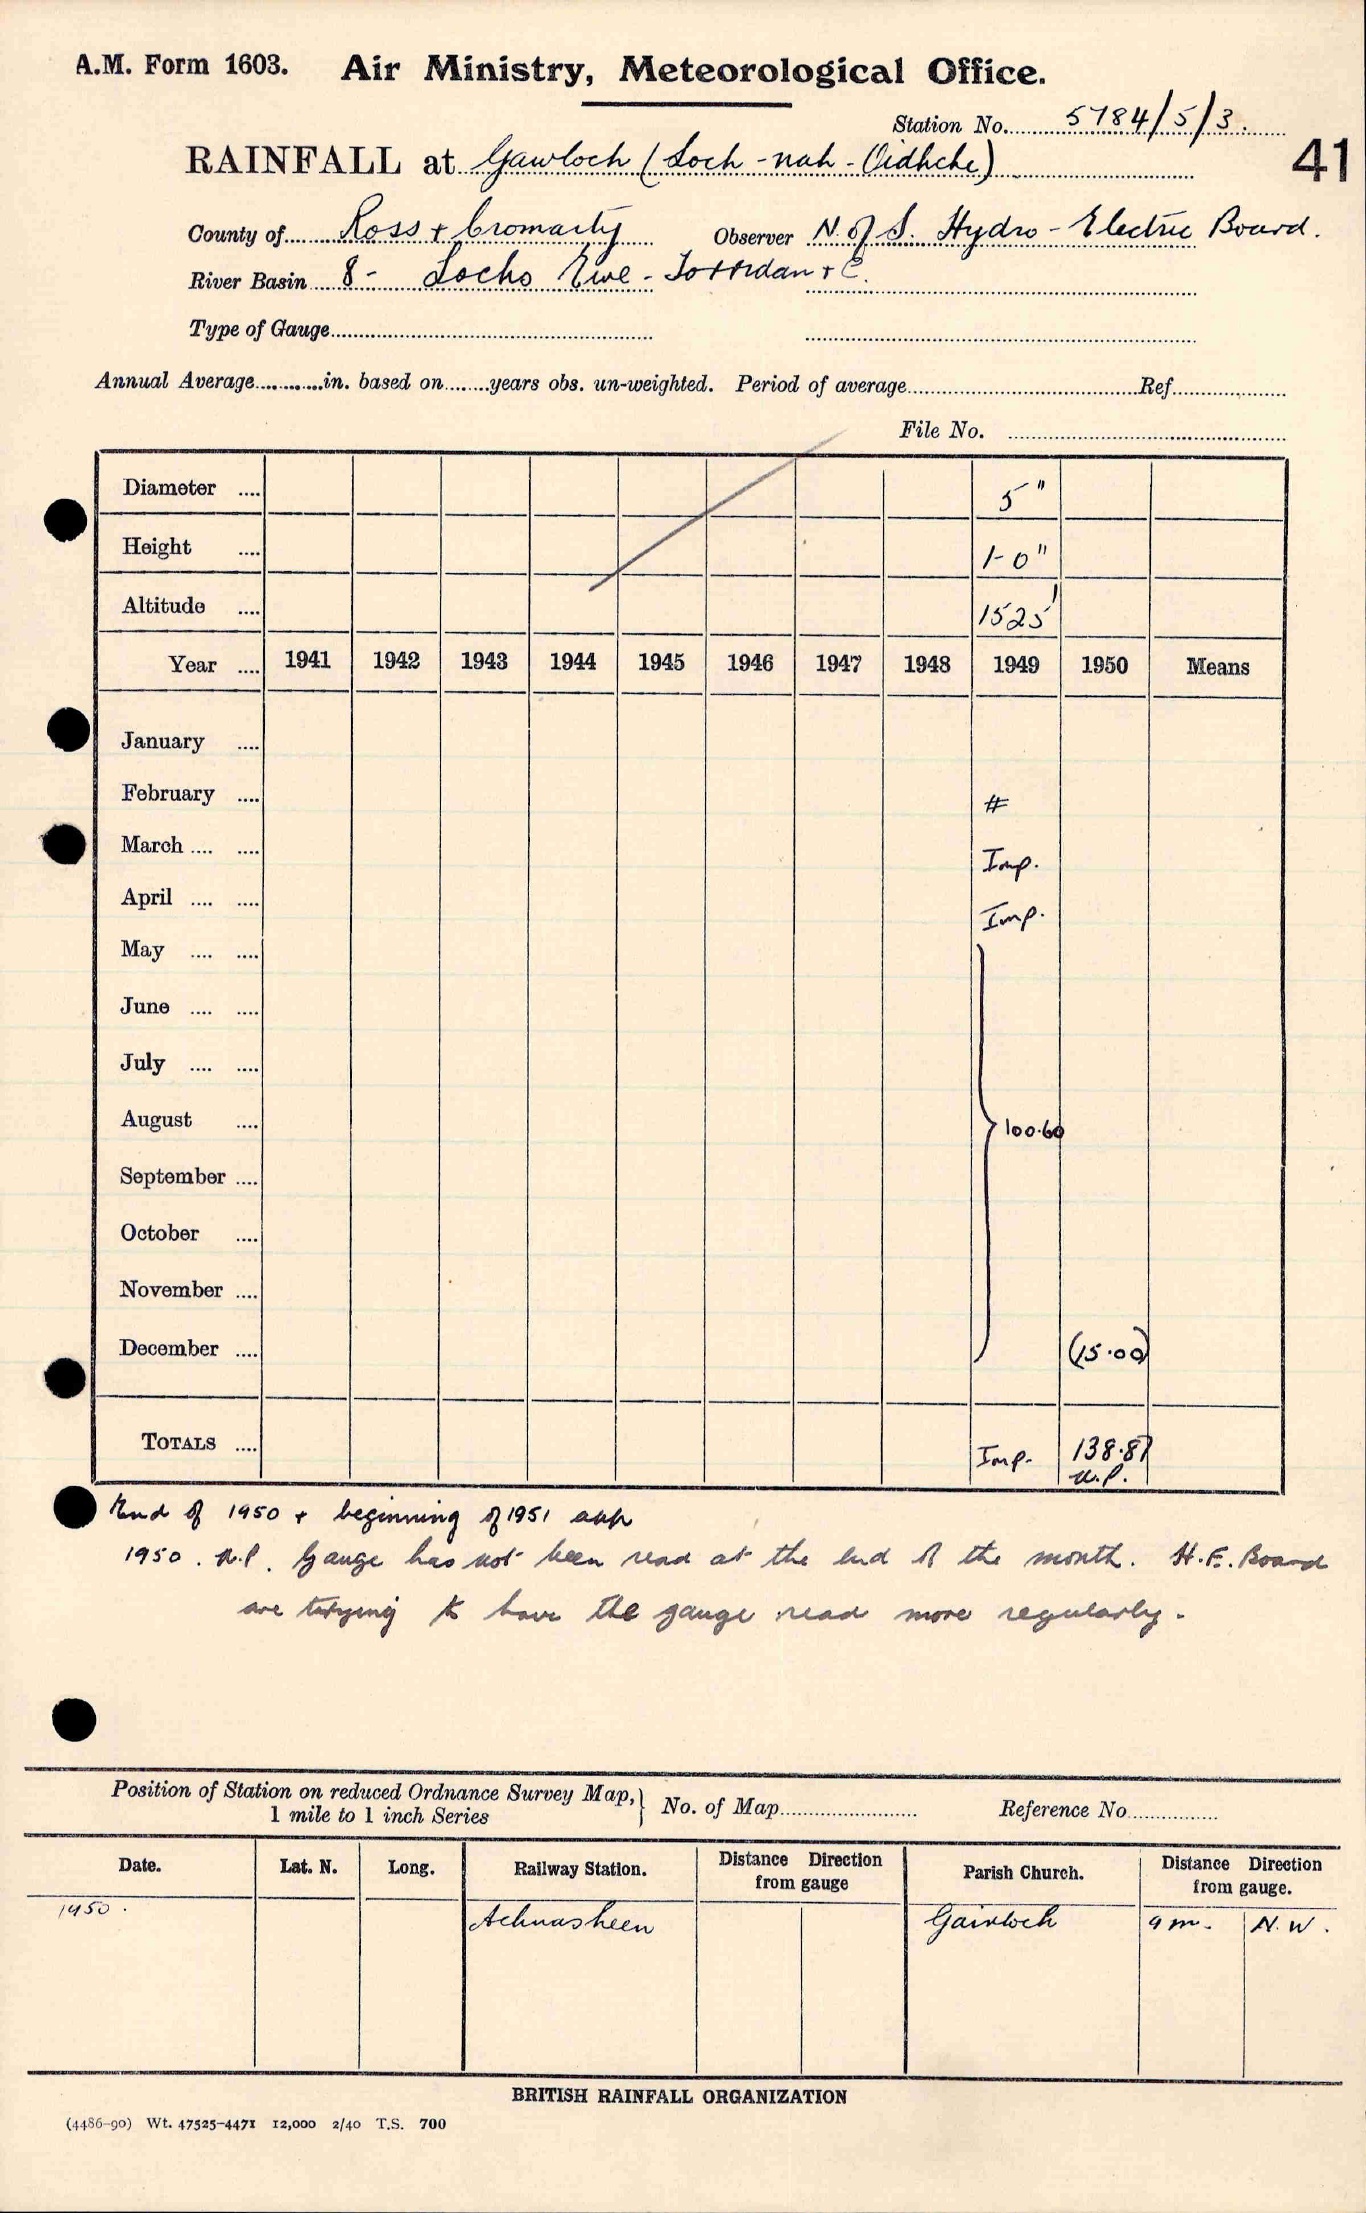 A.M. Form 1603. Air Ministry, Meteorological Office.
Station No. 5784/5/3.
RAINFALL at Gairloch (Loch-nah-Oidhche)
41
County of Ross + Cromarty Observer N. of S. Hydro-Electric Board.
River Basin 8- Lochs Ewe - Torridan + C.
Type of Gauge
Annual Average in. based on years obs. un-weighted. Period of average Ref.
File No.
Diameter 5"
Height 1-0"
Altitude 1525'
Year 1941 1942 1943 1944 1945 1946 1947 1948 1949 1950 Means
January
February #
March Imp.
April Imp.
May
June
July
August } 100.60
September
October
November
December (15.00)
TOTALS Imp. 138.87
n.p.
End of 1950 + beginning of 1951 app
1950. n.p. Gauge has not been read at the end of the month. H.E. Board
are trying to have the gauge read more regularly.
Position of Station on reduced Ordnance Survey Map,
1 mile to 1 inch Series } No. of Map Reference No.
Date. Lat. N. Long. Railway Station. Distance Direction from gauge Parish Church. Distance Direction from gauge.
1950. Achnasheen Gairloch 9 m. N.W.
BRITISH RAINFALL ORGANIZATION
(4486-90) Wt. 47525-4471 12,000 2/40 T.S. 700